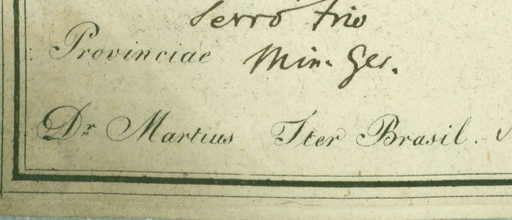 Serro frio
Provinciae Min. Ger.
Dr. Martius Iter Brasil.